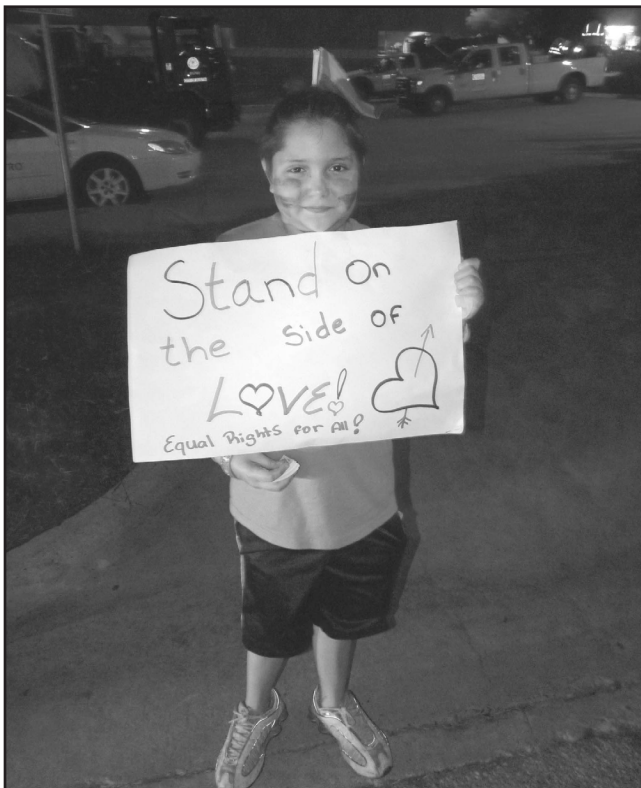 Stand on
the side of
LOVE!
Equal Rights for All!